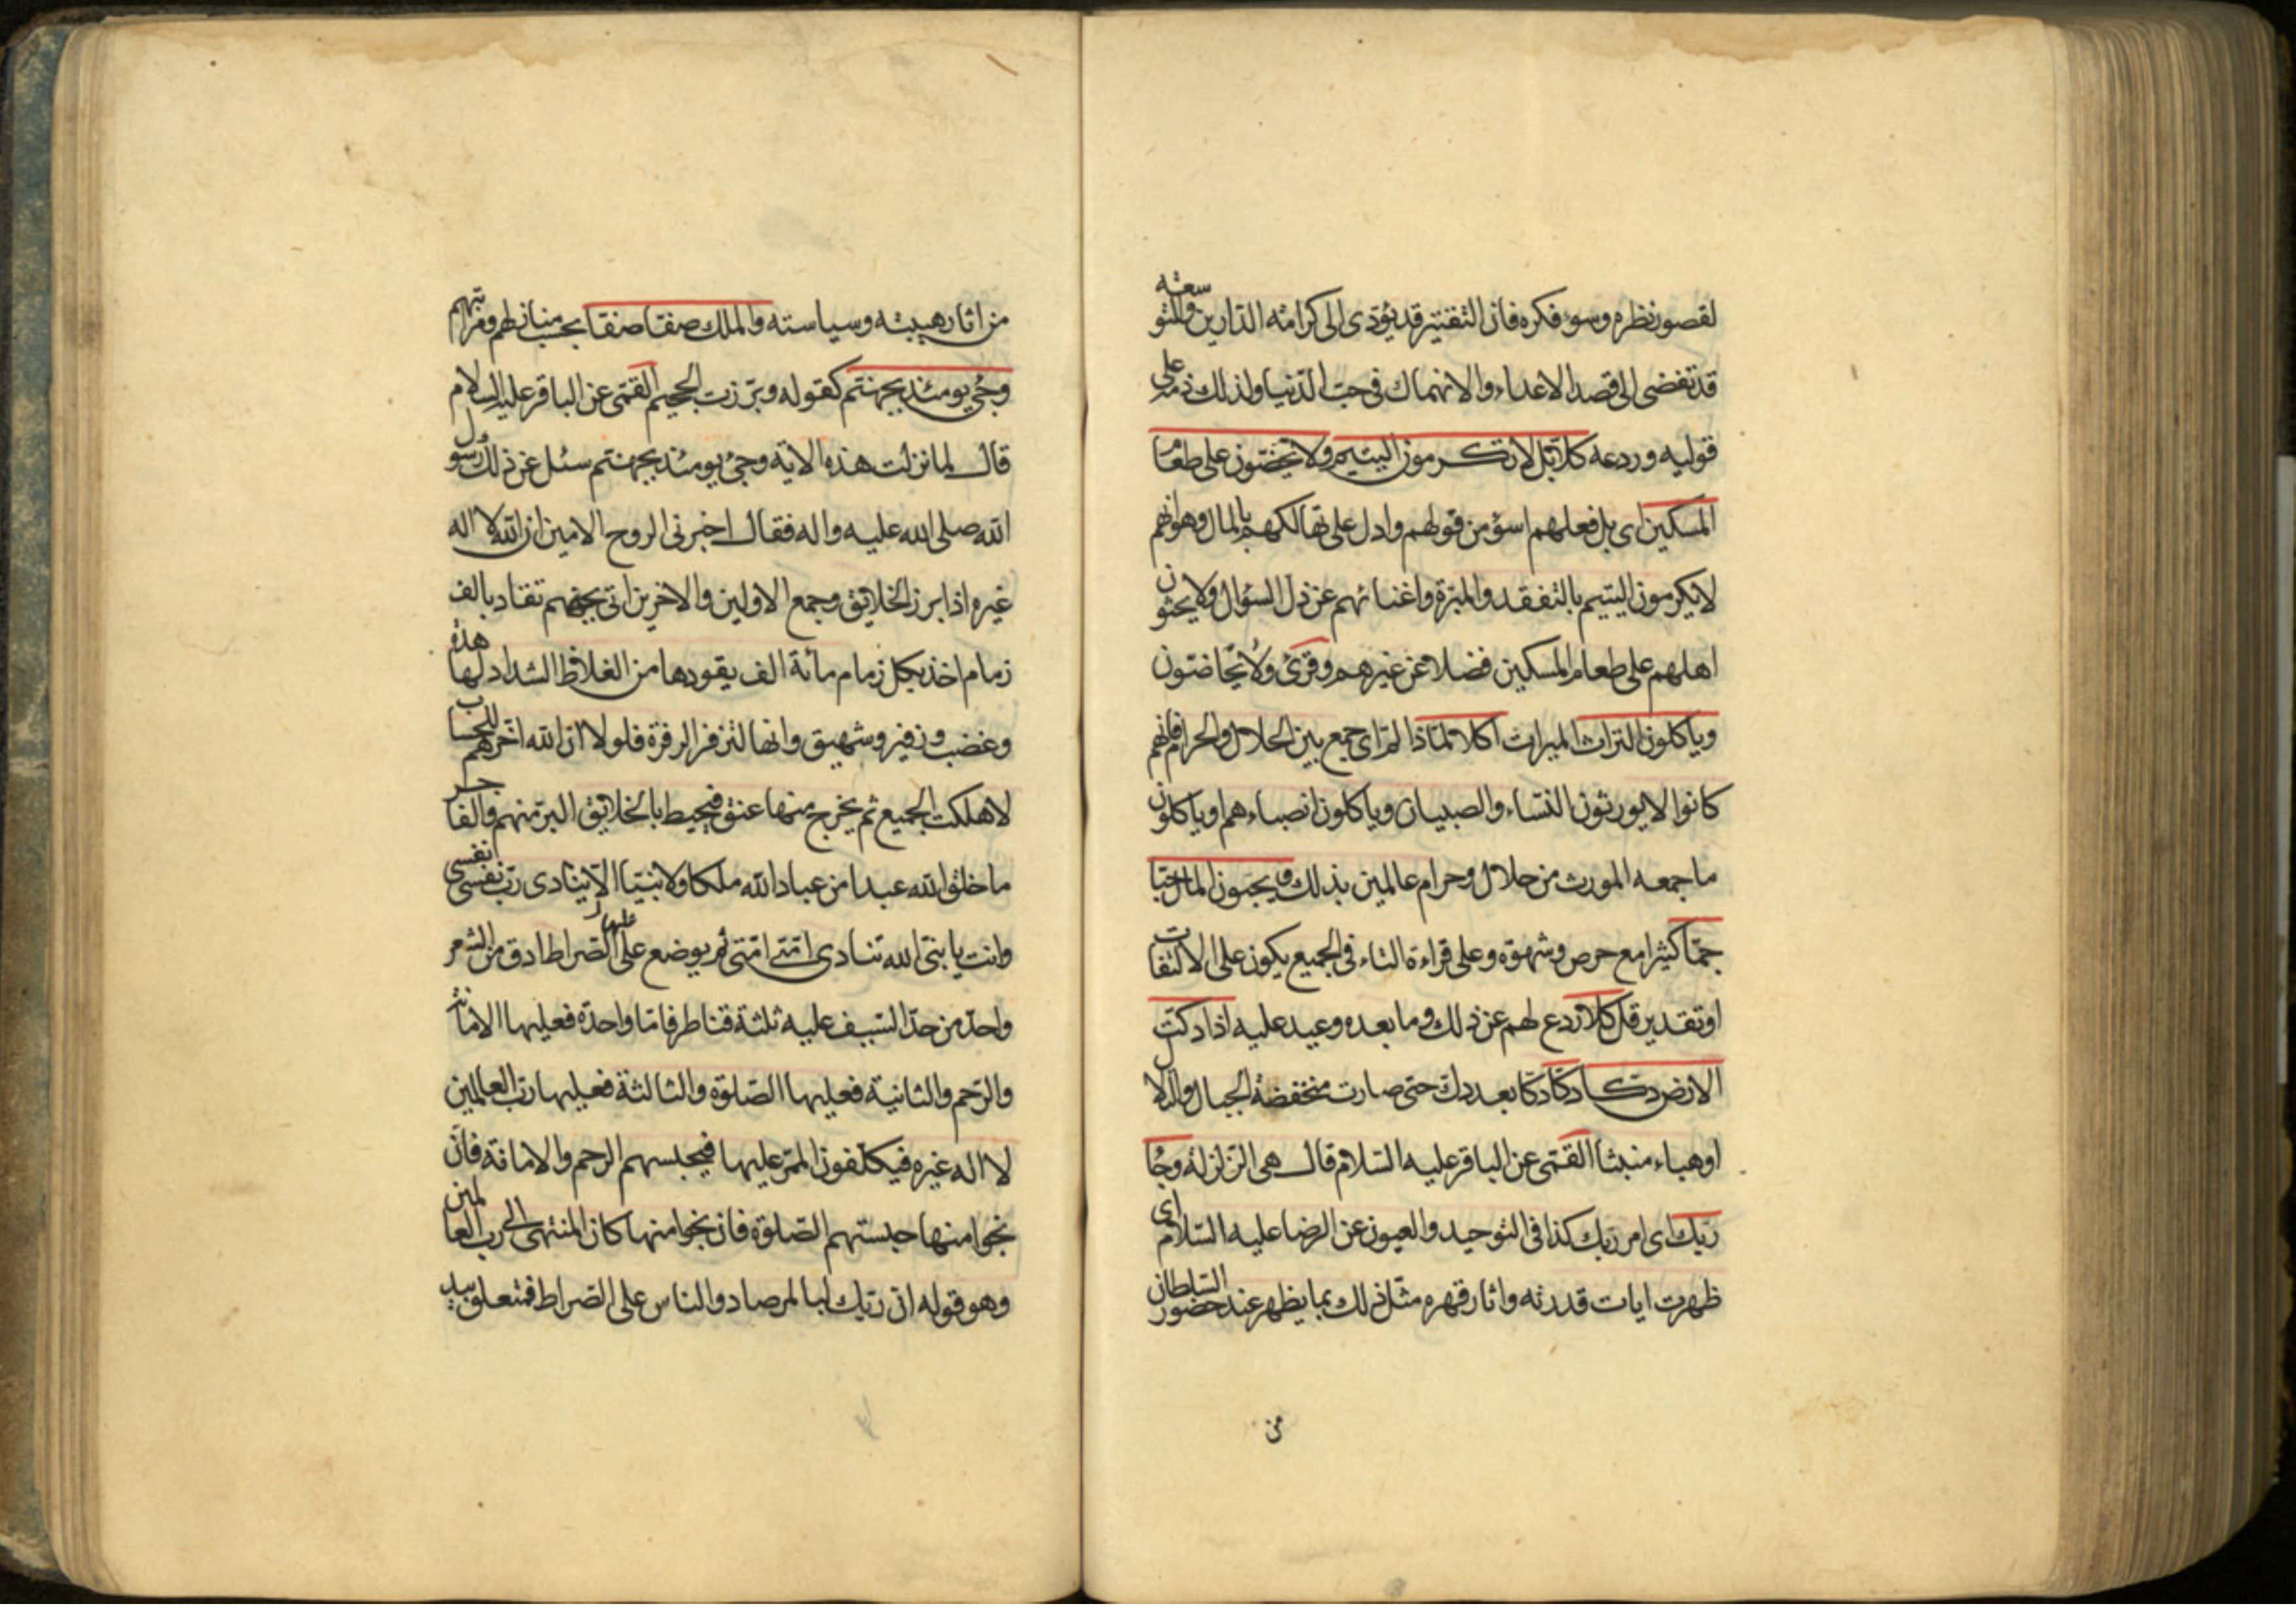 لقصور نظره وسوء فكره فان التقتير قد يؤدى الى كرامة الدارين والتوسعة
قد تفضى الى قصد الاعداء والانهماك فى حب الدنيا ولذلك ذمه على
قوليه وردعه كلا بل لا تكرمون اليتيم ولا تحضون على طعام
المسكين اى بل فعلهم اسوء من قولهم وادل على تهالكهم بالمال وهو انهم
لا يكرمون اليتيم بالتفقد والمبرة واغنائهم عن ذل السؤال ولا يحثون
اهلهم على طعام المسكين فضلا عن غيرهم وقرئ ولا تحاضون
وياكلون التراث الميراث اكلا لما ذا لم اى جمع بين الحلال والحرام فانهم
كانوا لا يورثون النساء والصبيان وياكلون انصباءهم او ياكلون
ما جمعه المورث من حلال وحرام عالمين بذلك ويحبون المال حبا
جما كثيرا مع حرص وشهوة وعلى قراءة التاء فى الجميع يكون على الالتفات
او تقدير قل كلا ردع لهم عن ذلك وما بعده وعيد عليه اذا دكت
الارض دكا دكا دكا بعد دك حتى صارت منخفضة الجبال والتلال
او هباء منبثا القمى عن الباقر عليه السلام قال هى الزلزلة وجاء
ربك اى امر ربك كذا فى التوحيد والعيون عن الرضا عليه السلام اى
ظهرت ايات قدرته واثار قهره مثل ذلك بما يظهر عند حضور السلطان
من
من اثار هيبته وسياسته والملك صفا صفا بحسب منازلهم ومراتبهم
وجئ يومئذ بجهنم كقوله وبرزت الجحيم القمى عن الباقر عليه السلام
قال لما نزلت هذه الاية وجئ يومئذ بجهنم سئل عن ذلك رسول
الله صلى الله عليه واله فقال اخبرنى الروح الامين ان الله لا اله
غيره اذا برز الخلايق وجمع الاولين والاخرين اتى بجهنم تقاد بالف
زمام اخذ بكل زمام مائة الف يقودها من الغلاظ الشداد لها هدة
وغضب وزفير وشهيق وانها لتزفر الزفرة فلولا ان الله اخرهم للحساب
لاهلكت الجميع ثم يخرج منها عنق فيحيط بالخلايق البر منهم والفاجر
ما خلق الله عبدا من عباد الله ملكا ولا نبيا الا ينادى رب نفسى نفسى
وانت يا نبى الله تنادى امتى امتى ثم يوضع عليها الصراط ادق من الشعر
واحد من حد السيف عليه ثلثة قناطر فاما واحدة فعليها الامانة
والرحم والثانية فعليها الصلوة والثالثة فعليها رب العالمين
لا اله غيره فيكلفون الممر عليها فيحبسهم الرحم والامانة فان
نجوا منها حبستهم الصلوة فان نجوا منها كان المنتهى الى رب العالمين
وهو قوله ان ربك لبالمرصاد والناس على الصراط فمتعلق بيد